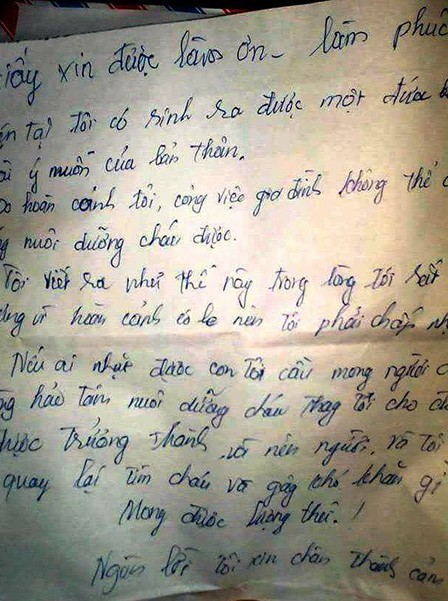 Giấy xin được làm ơn - làm phúc
tại tôi có sinh ra được một đứa
ý muốn của bản thân.
hoàn cảnh tôi, công việc gia đình không thể
nuôi dưỡng cháu được.
Tôi viết ra như thế này trong lòng tôi rất
vì hoàn cảnh éo le nên tôi phải chấp
Nếu ai nhặt được con tôi cầu mong người
hảo tâm nuôi dưỡng cháu thay tôi cho
được trưởng thành và nên người, và tôi
quay lại tìm cháu và gây khó khăn gì
Mong được lượng thứ. !
Ngàn lời tôi xin chân thành cảm